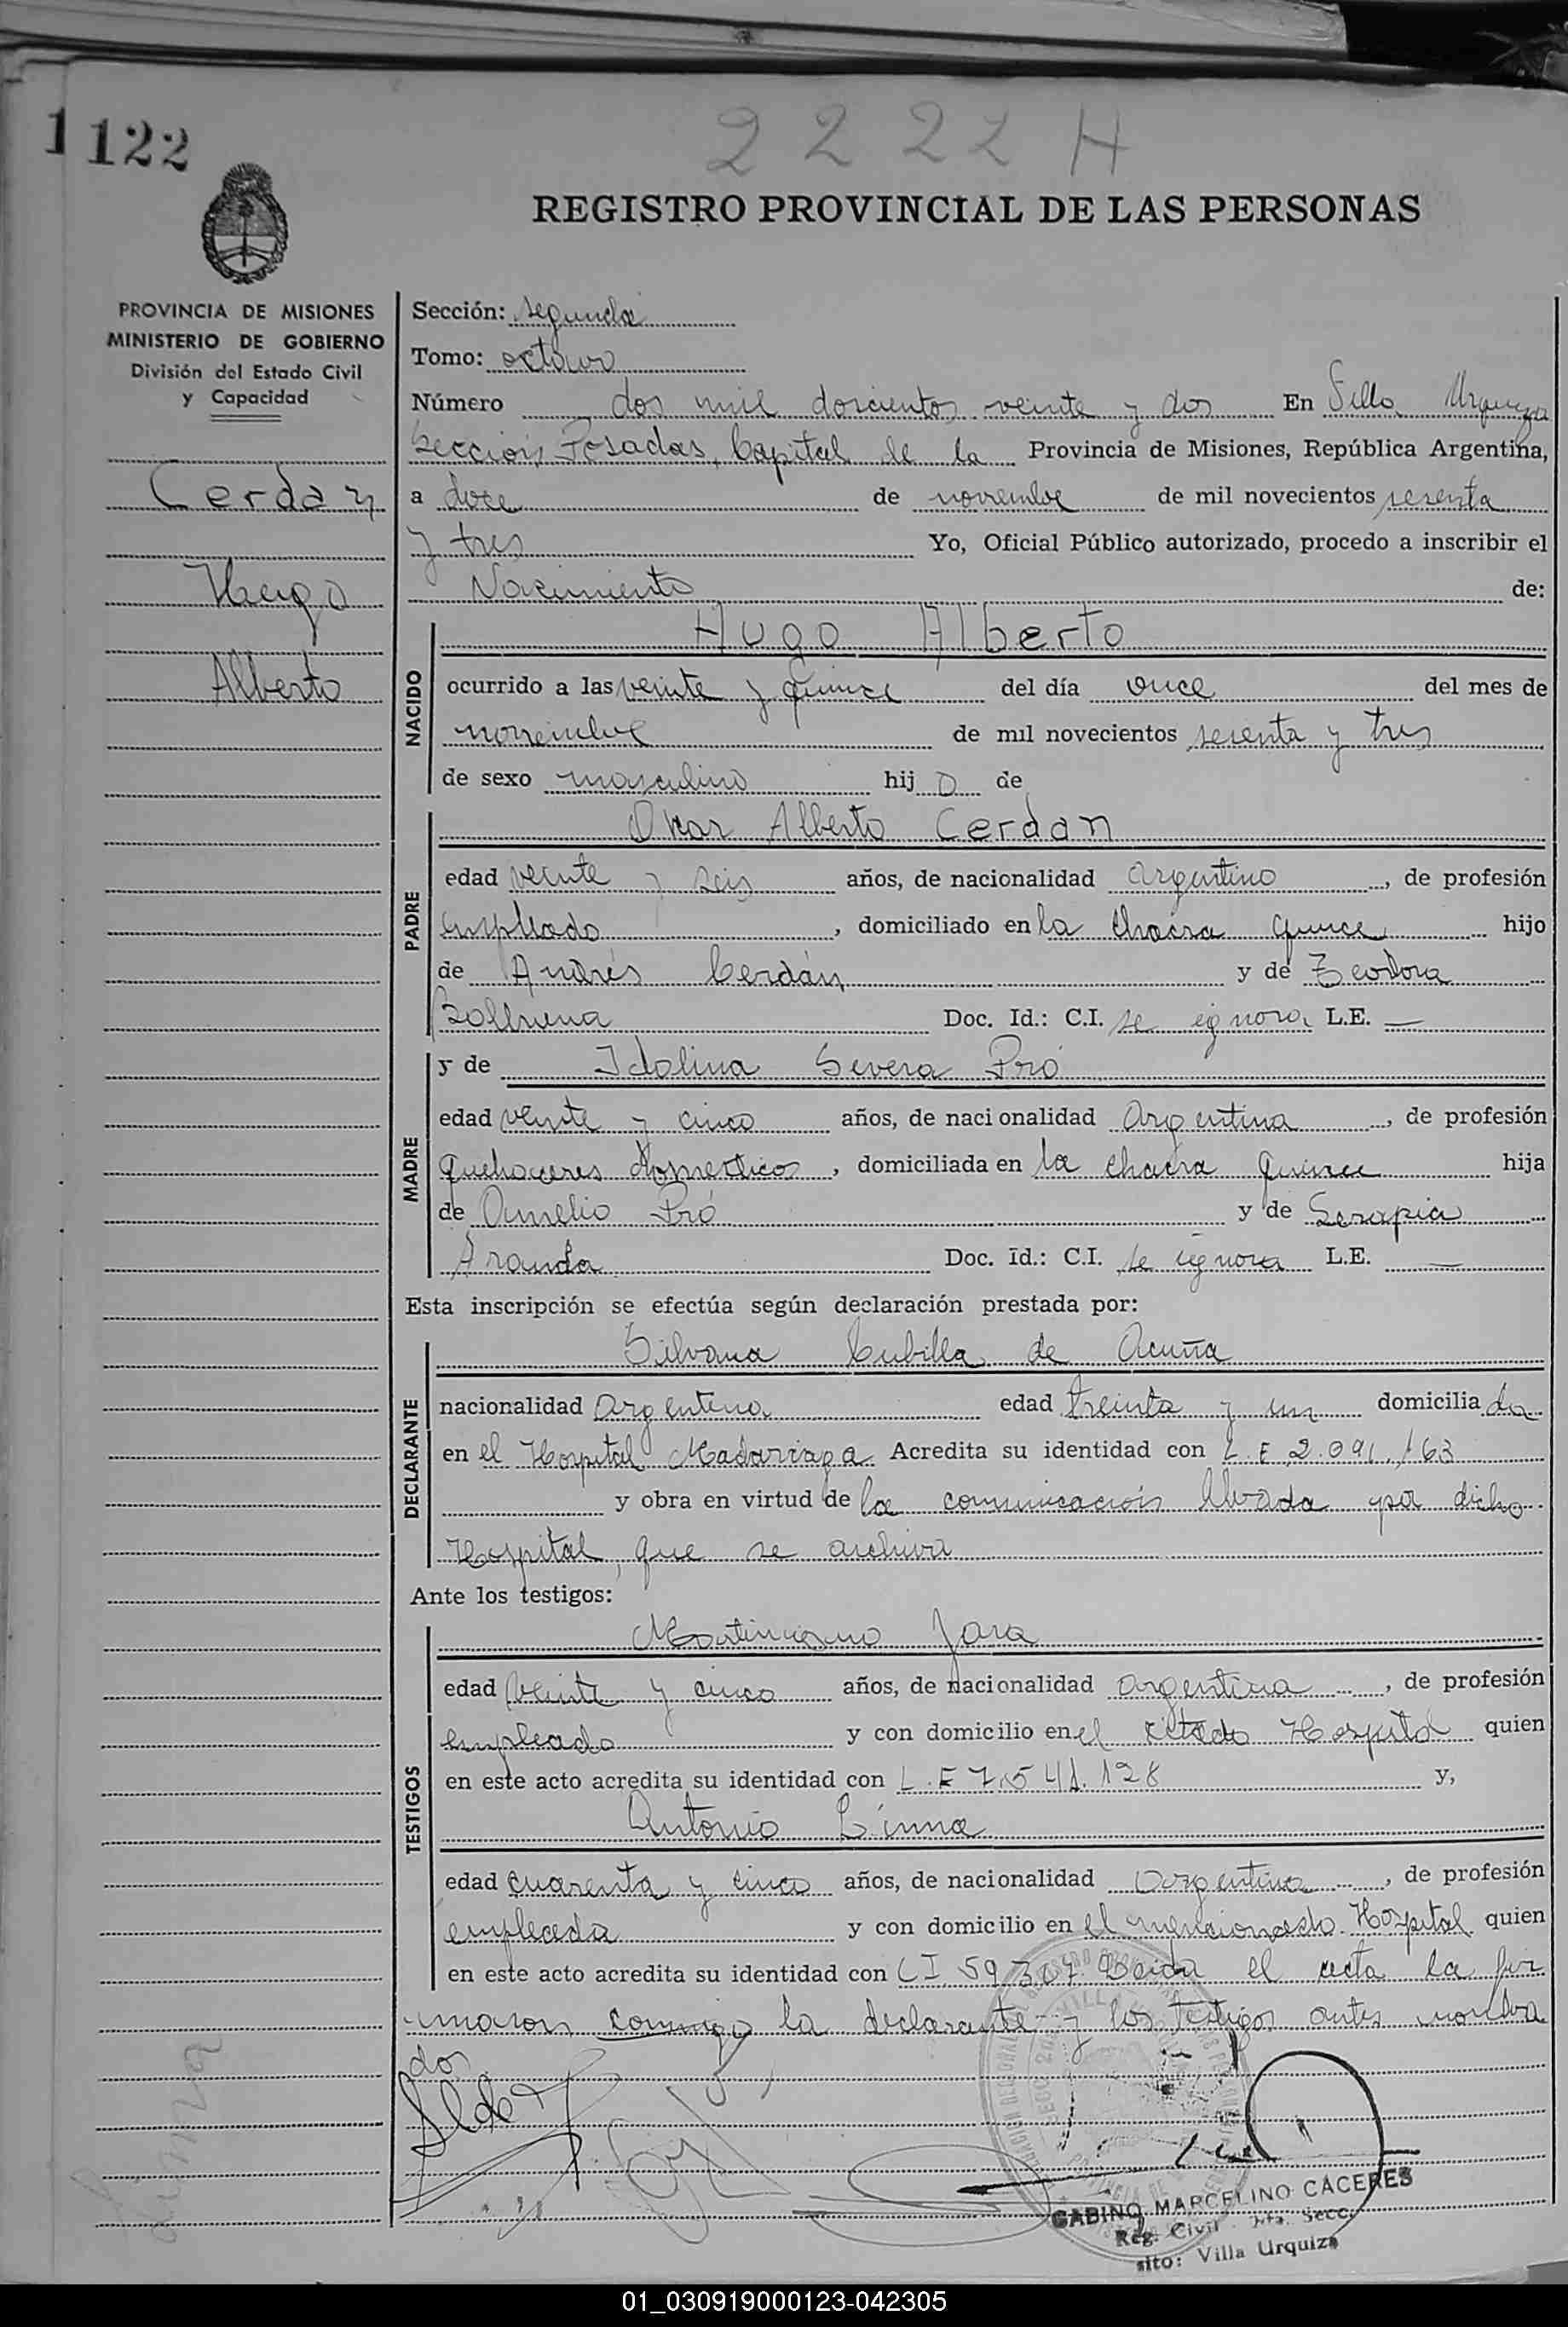 1122
2222 H
REGISTRO PROVINCIAL DE LAS PERSONAS
PROVINCIA DE MISIONES
MINISTERIO DE GOBIERNO
División del Estado Civil
y Capacidad
Cerdan
Hugo
Alberto
Sección: segunda
Tomo: octavo
Número dos mil doscientos veinte y dos En Villa Urquiza
Sección, Posadas, Capital de la Provincia de Misiones, República Argentina,
a doce de noviembre de mil novecientos sesenta
y tres Yo, Oficial Público autorizado, procedo a inscribir el
Nacimiento de:
NACIDO
Hugo Alberto
ocurrido a las veinte y quince del día once del mes de
noviembre de mil novecientos sesenta y tres
de sexo masculino hijo de
PADRE
Oscar Alberto Cerdan
edad veinte y seis años, de nacionalidad argentino, de profesión
empleado, domiciliado en la chacra quince hijo
de Andrés Cerdán y de Teodora
Doc. Id.: C.I. se ignora L.E. —
MADRE
y de Idolina Severa Pró
edad veinte y cinco años, de nacionalidad Argentina, de profesión
quehaceres domesticos, domiciliada en la chacra quince hija
de Aurelio Pró y de Serapia
Aranda Doc. Id.: C.I. se ignora L.E. —
Esta inscripción se efectúa según declaración prestada por:
DECLARANTE
Silvana Cubilla de Acuña
nacionalidad argentina edad treinta y un domiciliada
en el Hospital Madariaga Acredita su identidad con L.E 2.091.163
y obra en virtud de la comunicación librada por dicho
Hospital, que se archiva
Ante los testigos:
TESTIGOS
Jara
edad veinte y cinco años, de nacionalidad argentina, de profesión
empleado y con domicilio en el citado Hospital quien
en este acto acredita su identidad con L.E 7.541.128 y,
Antonio Linna
edad cuarenta y cinco años, de nacionalidad Argentina, de profesión
empleada y con domicilio en el mencionado Hospital quien
en este acto acredita su identidad con CI 59307. Leida el acta la fir
maron conmigo la declarante y los testigos antes nombra
dos
GABINO MARCELINO CACERES
Reg. Civil Secc.
sito: Villa Urquiza
01_030919000123-042305